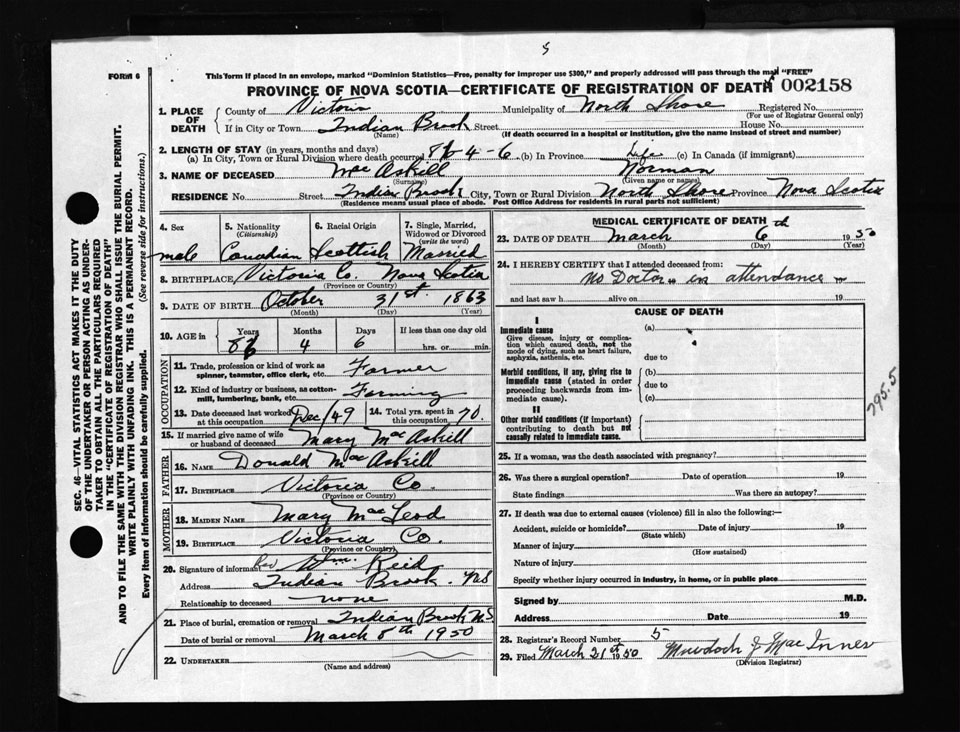 5
FORM 6
This form if placed in an envelope, marked "Dominion Statistics—Free, penalty for improper use $300," and properly addressed will pass through the mail "FREE"
PROVINCE OF NOVA SCOTIA—CERTIFICATE OF REGISTRATION OF DEATH 002158
1. PLACE OF DEATH
County of Victoria Municipality of North Shore Registered No.
(For use of Registrar General only)
If in City or Town Indian Brook Street House No.
(Name) (If death occurred in a hospital or institution, give the name instead of street and number)
2. LENGTH OF STAY (in years, months and days)
(a) In City, Town or Rural Division where death occurred 86-4-6 (b) In Province Life (c) In Canada (if immigrant)
3. NAME OF DECEASED MacAskill Norman
(Surname) (Given name or names)
RESIDENCE No. Street Indian Brook City, Town or Rural Division North Shore Province Nova Scotia
(Residence means usual place of abode. Post Office Address for residents in rural parts not sufficient)
4. Sex
male
5. Nationality
(Citizenship)
Canadian
6. Racial Origin
Scottish
7. Single, Married, Widowed or Divorced
(write the word)
Married
8. BIRTHPLACE Victoria Co. Nova Scotia
(Province or Country)
9. DATE OF BIRTH October 31st. 1863
(Month) (Day) (Year)
10. AGE in Years Months Days If less than one day old
86 4 6 hrs. or min.
OCCUPATION
11. Trade, profession or kind of work as spinner, teamster, office clerk, etc. Farmer
12. Kind of industry or business, as cotton-mill, lumbering, bank, etc. Farming
13. Date deceased last worked at this occupation Dec/49 14. Total yrs. spent in 70.
15. If married give name of wife or husband of deceased Mary MacAskill
FATHER
16. NAME Donald MacAskill
17. BIRTHPLACE Victoria Co.
(Province or Country)
MOTHER
18. MAIDEN NAME Mary MacLeod
19. BIRTHPLACE Victoria Co.
(Province or Country)
20. Signature of informant Rev Wm. Reid
Address Indian Brook. NS
Relationship to deceased none
21. Place of burial, cremation or removal Indian Brook N.S.
Date of burial or removal March 8th 1950
22. UNDERTAKER
(Name and address)
MEDICAL CERTIFICATE OF DEATH
23. DATE OF DEATH March 6th 1950
(Month) (Day) (Year)
24. I HEREBY CERTIFY that I attended deceased from:
No Doctor in attendance
and last saw h alive on 19
CAUSE OF DEATH
I
Immediate cause (a)
Give disease, injury or complication which caused death, not the mode of dying, such as heart failure, asphyxia, asthenia, etc.
due to
Morbid conditions, if any, giving rise to immediate cause (stated in order proceeding backwards from immediate cause).
(b)
due to
(c)
II
Other morbid conditions (if important) contributing to death but not causally related to immediate cause.
795.5
25. If a woman, was the death associated with pregnancy?
26. Was there a surgical operation? Date of operation 19
State findings Was there an autopsy?
27. If death was due to external causes (violence) fill in also the following:—
Accident, suicide or homicide? Date of injury 19
(State which)
Manner of injury
(How sustained)
Nature of injury
Specify whether injury occurred in industry, in home, or in public place
Signed by M.D.
Address Date 19
28. Registrar's Record Number 5
29. Filed March 21st 1950 Murdoch J MacInnes
(Division Registrar)
SEC. 46—VITAL STATISTICS ACT MAKES IT THE DUTY
OF THE UNDERTAKER OR PERSON ACTING AS UNDER-
TAKER TO OBTAIN ALL THE PARTICULARS REQUIRED
IN THE "CERTIFICATE OF REGISTRATION OF DEATH"
AND TO FILE THE SAME WITH THE DIVISION REGISTRAR WHO SHALL ISSUE THE BURIAL PERMIT.
WRITE PLAINLY WITH UNFADING INK. THIS IS A PERMANENT RECORD.
Every item of information should be carefully supplied. (See reverse side for instructions.)